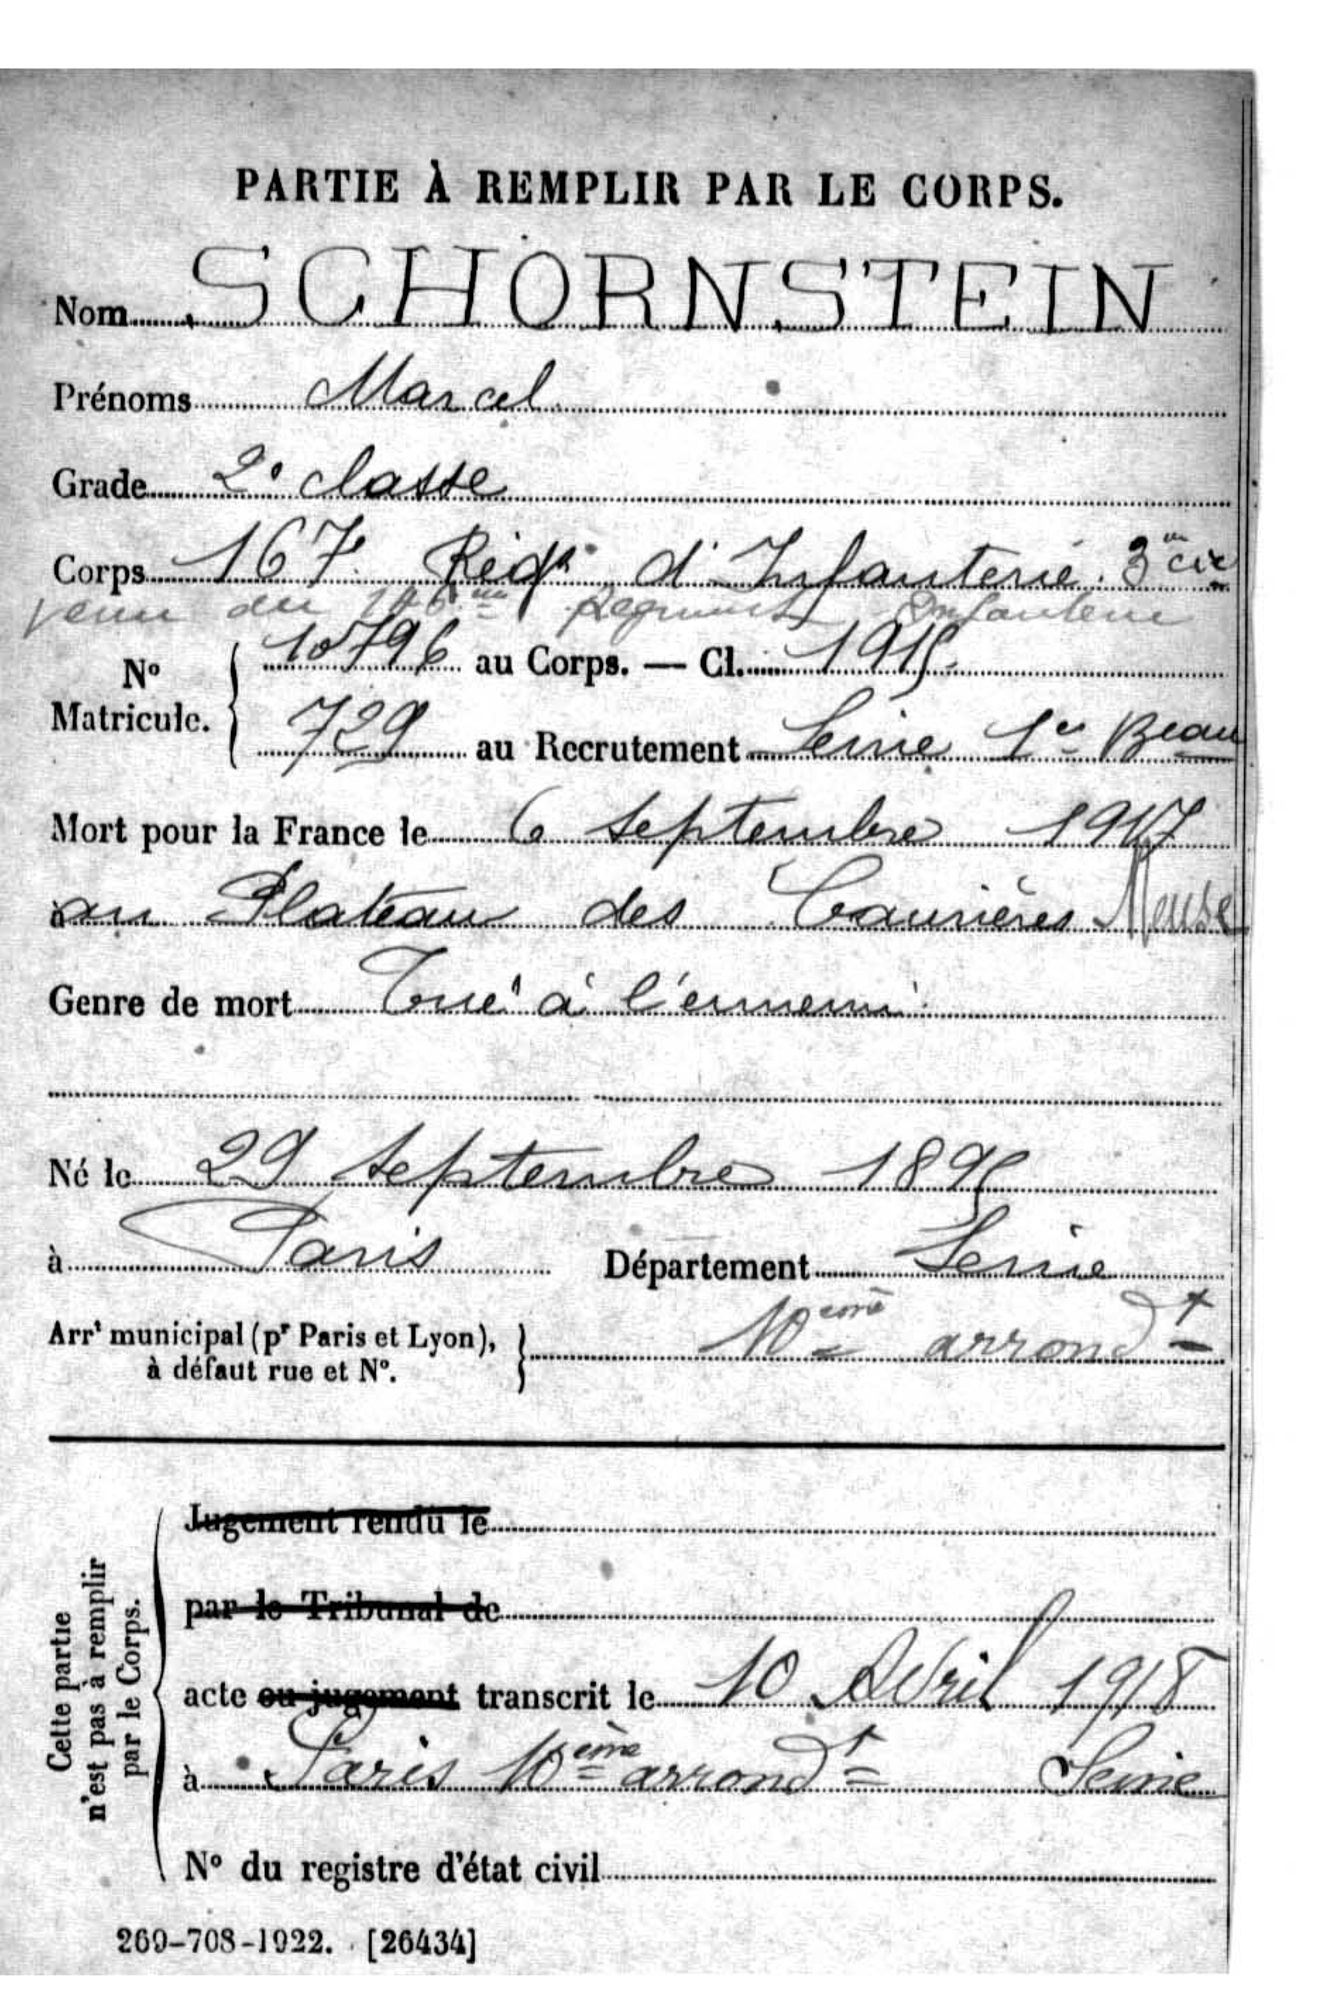 PARTIE À REMPLIR PAR LE CORPS.
Nom SCHORNSTEIN
Prénoms Marcel
Grade 2e classe
Corps 167e Régt d'Infanterie 3me Cie
venu du Régiment Infanterie
No Matricule. 10796 au Corps. — Cl. 1915
729 au Recrutement Seine 1er Beau
Mort pour la France le 6 septembre 1917
au Plateau des Caurières Meuse
Genre de mort Tué à l'ennemi
Né le 29 septembre 1895
à Paris Département Seine
Arrt municipal (pr Paris et Lyon), à défaut rue et No. 10ème arrondt
Cette partie n'est pas à remplir par le Corps.
Jugement rendu le
par le Tribunal de
acte ou jugement transcrit le 10 Avril 1918
à Paris 10ème arrondt Seine
No du registre d'état civil
269-708-1922. [26434]